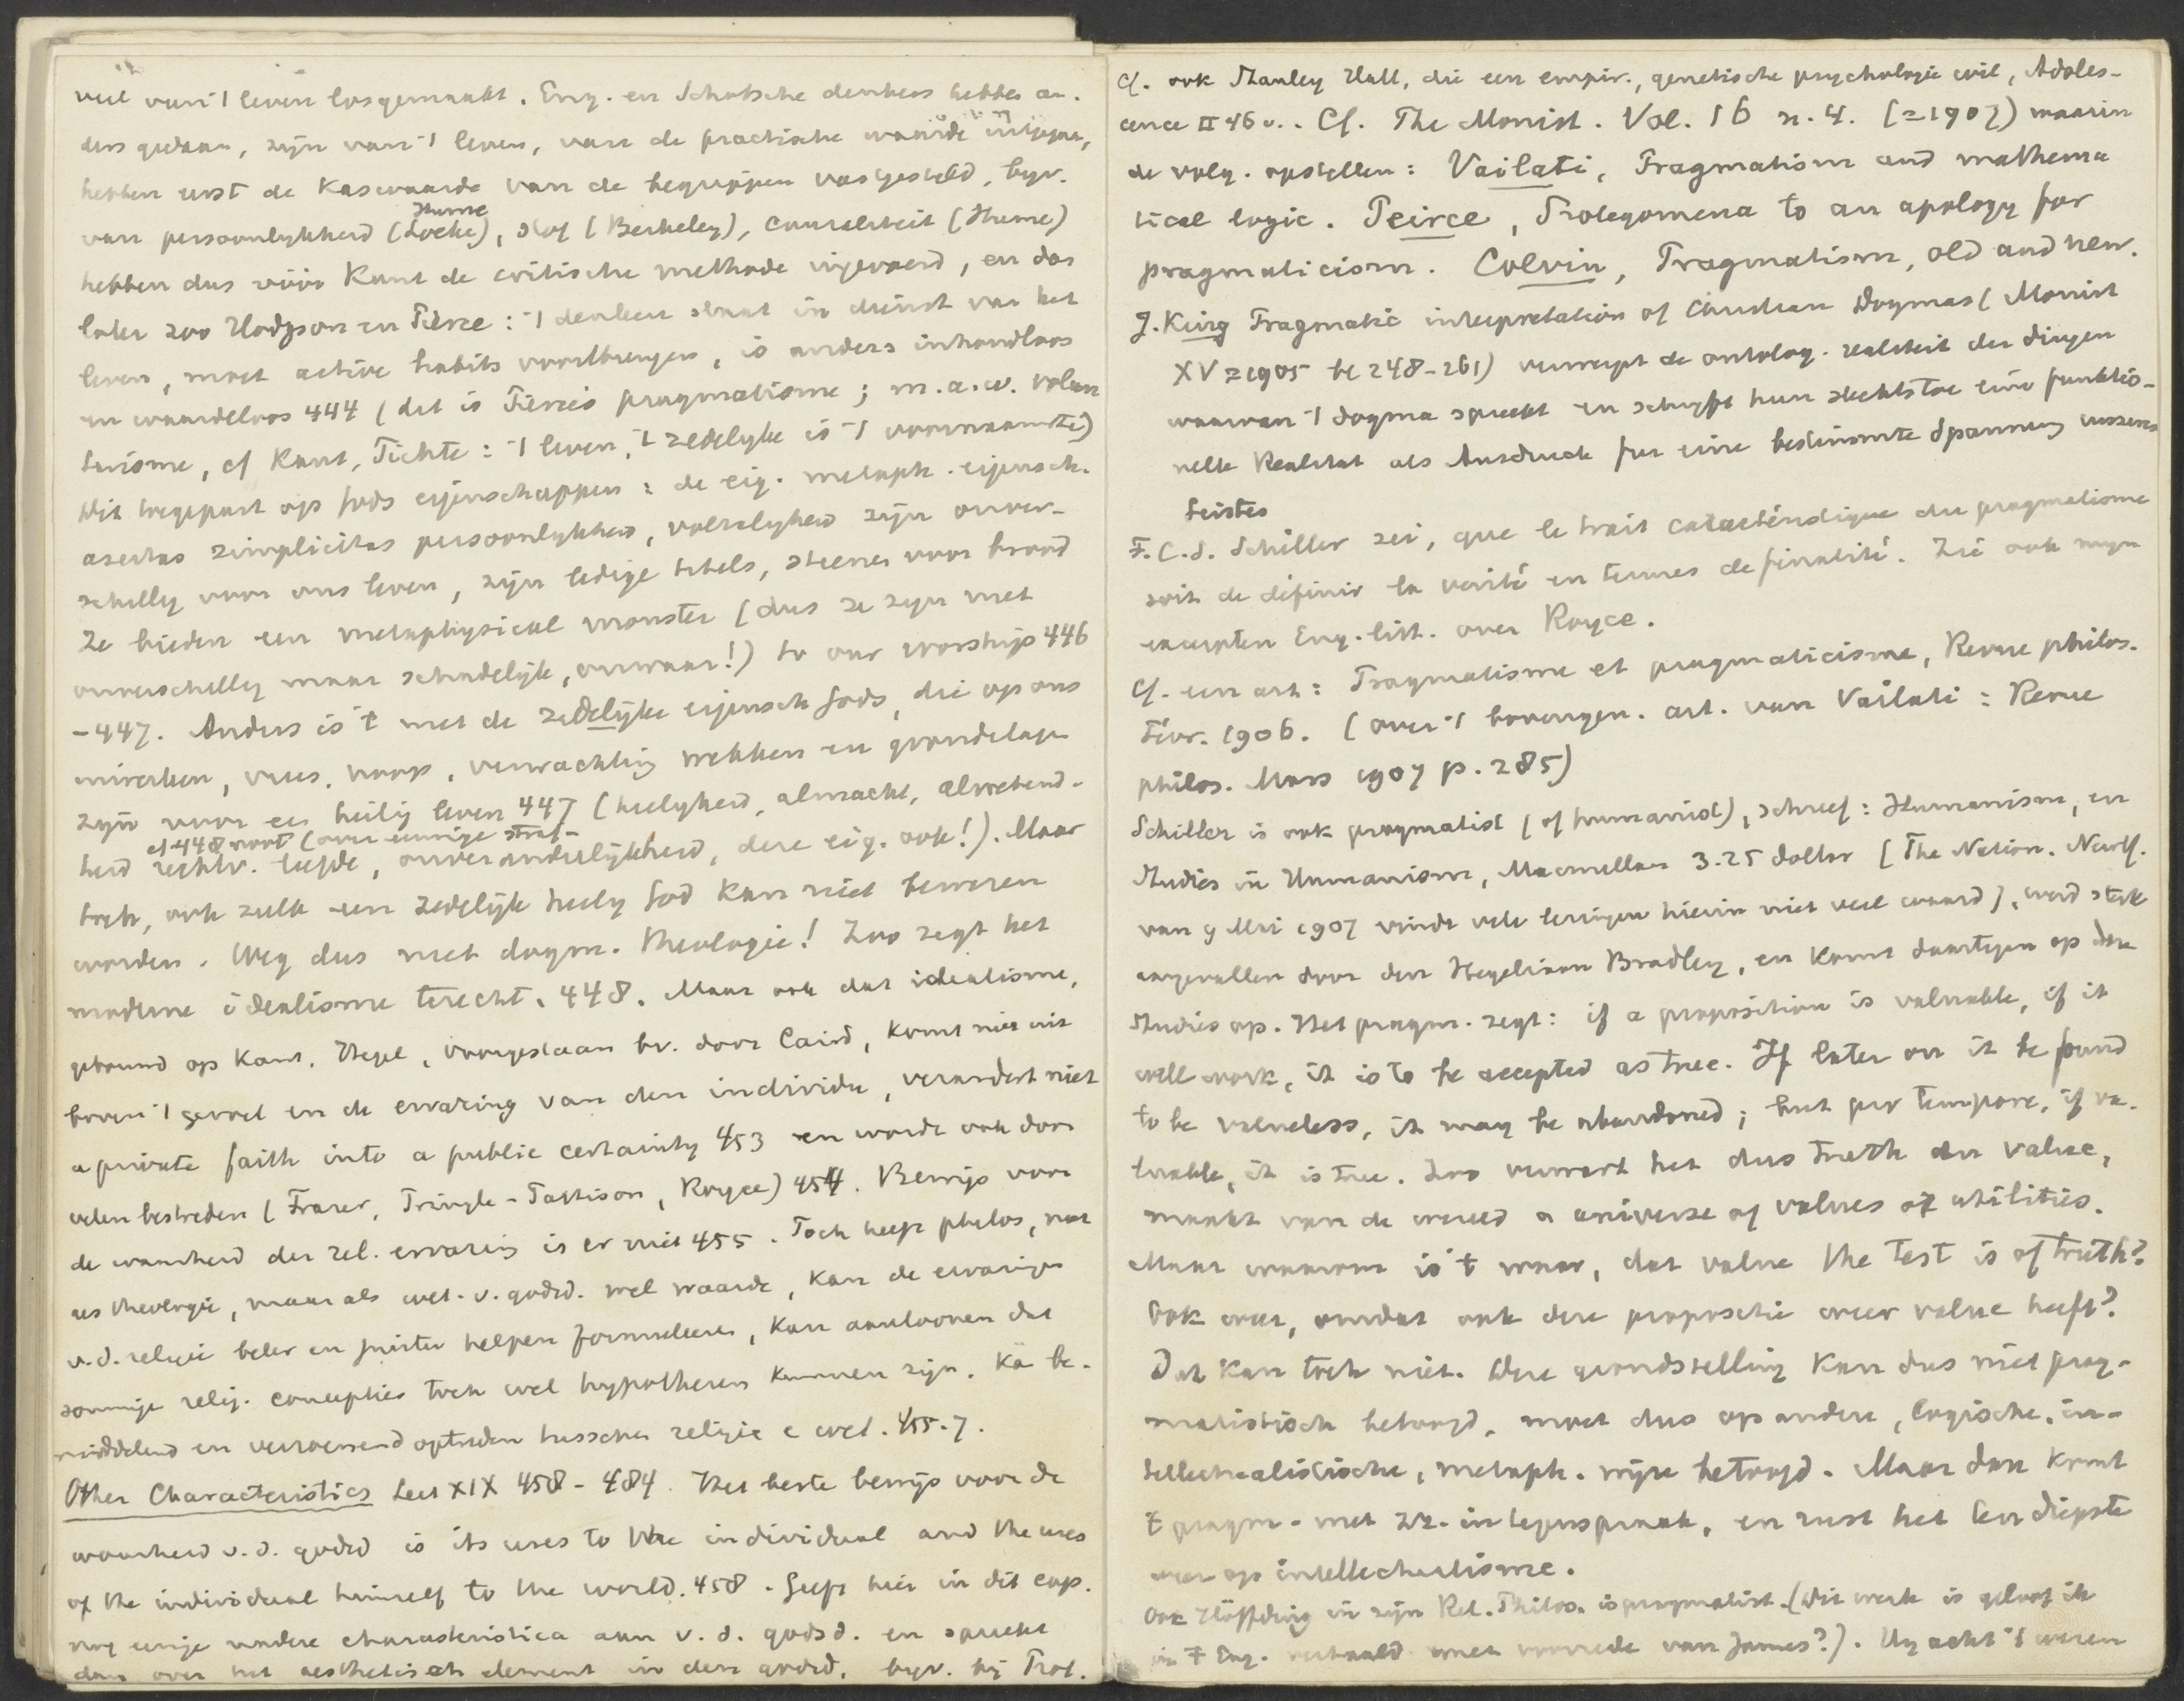 veel van 't leven losgemaakt. Eng. en Schotsche denkers hebben an-
ders gedaan, zijn van 't leven, van de practische waarde uitgegaan,
hebben eerst de Kaswaarde van de begrippen vastgesteld, bijv.
Hume
van persoonlijkheid (Locke), stof (Berkeley), causaliteit (Hume)
hebben dus vóór Kant de critische methode ingevoerd, en dan
later zoo Hodgson en Peirce: 't denken staat in dienst van het
leven, moet active habits voortbrengen, is anders inhoudloos
en waardeloos 444 (dit is Peirce's pragmatisme; m.a.w. volun
tarisme, cf Kant, Fichte: 't leven, 't zedelijke is 't voornaamste)
Dit toegepast op Gods eigenschappen: de eig. metaph. eigensch.
aseitas simplicitas persoonlijkheid, volzaligheid zijn onver-
schillig voor ons leven, zijn ledige titels, steenen voor brood
Ze bieden een metaphysical monster (dus ze zijn niet
onverschillig maar schadelijk, onwaar!) to our worship 446
-447. Anders is 't met de zedelijke eigensch Gods, die op ons
inwerken, vrees, hoop, verwachting wekken en grondslagen
zijn voor een heilig leven 447 (heiligheid, almacht, alwetend-
cf 448 noot (over eeuwige straf-
heid rechtv. liefde, onveranderlijkheid, deze eig. ook!). Maar
toch, ook zulk een zedelijk heilig God kan niet bewezen
worden. Weg dus met dogm. theologie! Zoo zegt het
moderne idealisme terecht. 448. Maar ook dat idealisme,
gebouwd op Kant, Hegel, voorgestaan bv. door Caird, komt niet uit
boven 't gevoel en de ervaring van den individu, verandert niet
a private faith into a public certainty 453 en wordt ook door
velen bestreden (Fraser, Pringle-Pattison, Royce) 454. Bewijs voor
de waarheid der rel. ervaring is er niet 455. Toch heeft philos, niet
als theologie, maar als wet. v. godsd. wel waarde, kan de ervaringen
v.d. religie beter en juister helpen formuleeren, kan aantoonen dat
sommige relig. concepties toch wel hypothesen kunnen zijn. Ka be-
middelend en verzoenend optreden tusschen religie e wet. 455-7.
Other Characteristics Lect XIX 458-484. Het beste bewijs voor de
waarheid v.d. godsd is its uses to the individual and the uses
of the individual himself to the world. 458. Geeft hier in dit cap.
nog eenige andere characteristica aan v. d. godsd. en spreekt
dan over het aesthetisch element in den godsd. bijv. bij Prot.
Cf. ook Stanley Hall, die een empir., genetische psychologie wil, Adoles-
cence II 46 v.. Cf. The Monist. Vol. 16 n. 4. (=1907) waarin
de volg. opstellen: Vailati, Pragmatism and mathema
tical logic. Peirce, Prolegomena to an apology for
pragmaticism. Colvin, Pragmatism, old and new.
J. King Pragmatic interpretation of Christian Dogmas (Monist
XV=1905 bl 248-261) verwerpt de ontolog. realiteit der dingen
waarvan 't dogma spreekt en schrijft hun slechts toe eine funktio-
nelle Realitat als Ausdruck fur eine bestimmte Spannung unseres
Geistes
F. C. S. Schiller zei, que le trait caractéristique du pragmatisme
soit de définir la verité en termes de finalité. Zie ook mijn
excerpten Eng. litt. over Royce.
Cf. een art: Pragmatisme et pragmaticisme, Revue philos.
Fevr. 1906. (over 't bovengen. art. van Vailati: Revue
philos. Mars 1907 p. 285)
Schiller is ook pragmatist (of humanist), schreef: Humanism, en
Studies in Humanism, Macmillan 3.25 dollar (The Nation. New Y.
van 9 Mei 1907 vindt vele lezingen hierin niet veel waard), werd sterk
aangevallen door den Hegeliaan Bradley, en komt daartegen op deze
Studies op. Het pragm. zegt: if a proposition is valuable, if it
will work, it is to be accepted as true. If later on it be found
to be valueless, it may be abandoned; but pro tempore, if va-
luable, it is true. Zoo verwart het dus truth en value,
maakt van de wereld a universe of values of utilities.
Maar waarom is 't waar, dat value the test is of truth?
Ook weer, omdat ook deze propositie weer value heeft?
Dat kan toch niet. Deze grondstelling kan dus niet prag-
matistisch betoogd, moet dus op andere, logische, in-
tellectualistische, metaph. wijze betoogd. Maar dan komt
't pragm. met zz. in tegenspraak, en rust het ten diepste
weer op intellectualisme.
Ook Höffding in zijn Rel. Philos. is pragmatist. (Dit werk is geloof ik
in 't Eng. vertaald met voorrede van James?). Hij acht 't wezen